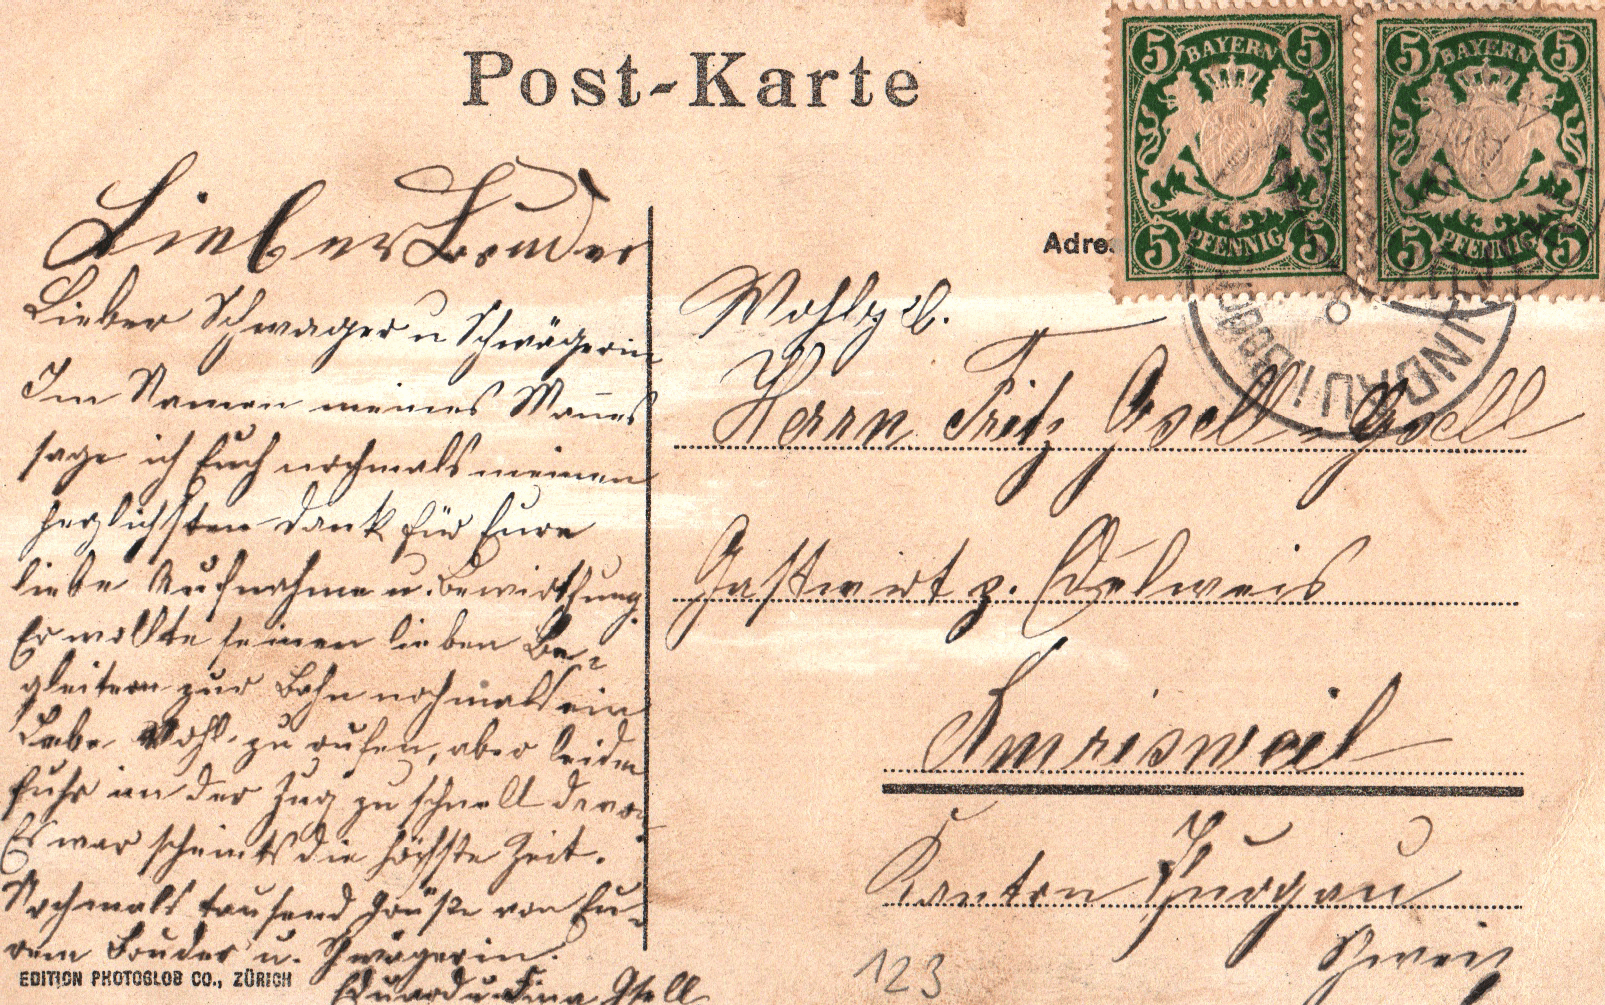 Post-Karte
5 BAYERN 5
5 PFENNIG 5
5 BAYERN 5
5 PFENNIG 5
Adre
LINDAU i BODEN
Lieber Bruder
Lieber Schwager u Schwägerin
Im Namen meines Mannes
sage ich Euch nochmals meinen
herzlichsten Dank für Eure
liebe Aufnahme u. Bewirthung.
Er wollte seinen lieben Be-
gleitern zur Bahn nochmals ein
Lebe Wohl zu rufen, aber leider
fuhr in der Zug zu schnell davon
Es war scheints die höchste Zeit.
Nochmals tausend Grüße von Eu-
rem Bruder u. Schwägerin.
Eduard u Fina Gsell
Wohlgeb.
Herrn Fritz Gsell-Gsell
Gastwirt z. Edelweis
Amrisweil
Kanton Thurgau
Schweiz
123
EDITION PHOTOGLOB CO., ZÜRICH